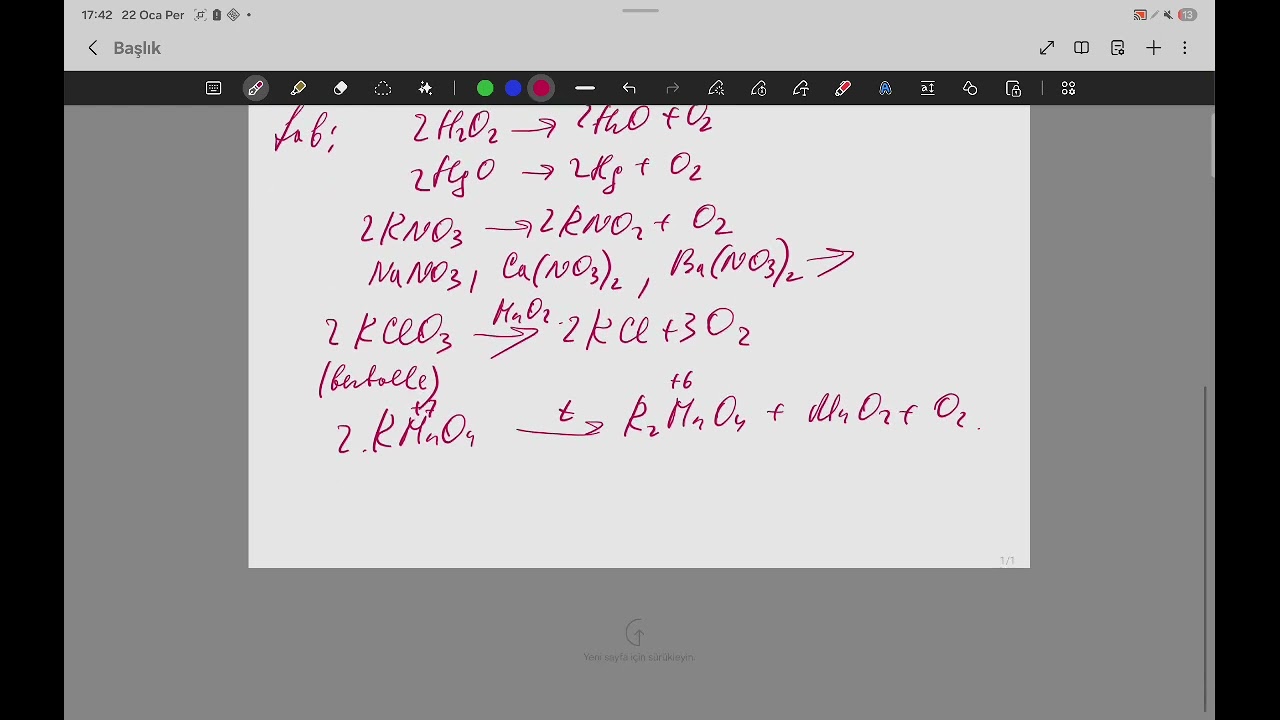 17:42 22 Oca Per
13
Başlık
Lab;
2H₂O₂ → 2H₂O + O₂
2HgO → 2Hg + O₂
2KNO₃ → 2KNO₂ + O₂
NaNO₃, Ca(NO₃)₂, Ba(NO₃)₂ →
MnO₂
2KClO₃ → 2KCl + 3O₂
(bertolle)
+7 +6
2.KMnO₄ t → K₂MnO₄ + MnO₂ + O₂.
1/1
Yeni sayfa için sürükleyin.